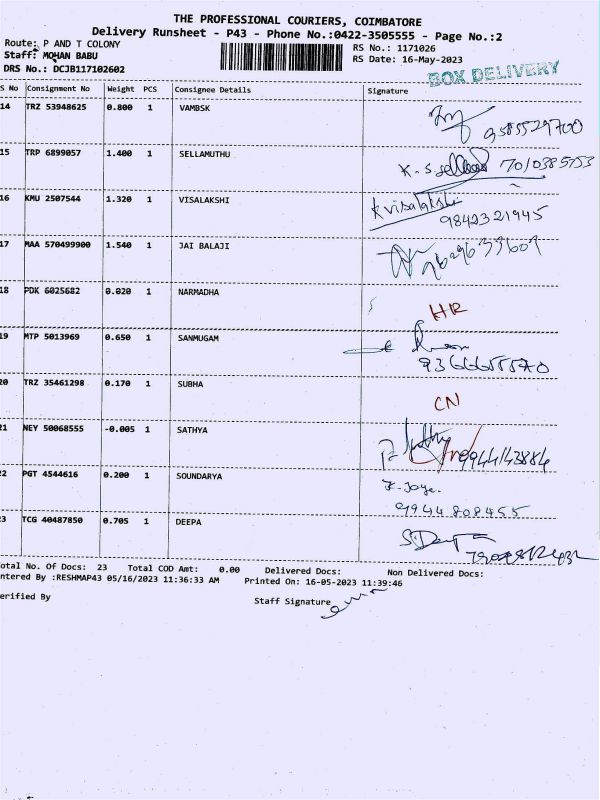 THE PROFESSIONAL COURIERS, COIMBATORE
Delivery Runsheet - P43 - Phone No.:0422-3505555 - Page No.:2
Route: P AND T COLONY
RS No.: 1171026
Staff: MOHAN BABU
RS Date: 16-May-2023
DRS No.: DCJB117102602
BOX DELIVERY
S No Consignment No Weight PCS Consignee Details Signature
14 TRZ 53948625 0.800 1 VAMBSK
9585529700
15 TRP 6899057 1.400 1 SELLAMUTHU
K.S. 7010385753
16 KMU 2507544 1.320 1 VISALAKSHI K visalakshi
9842321945
17 MAA 570499900 1.540 1 JAI BALAJI
18 PDK 6025682 0.020 1 NARMADHA
HR
19 MTP 5013969 0.650 1 SANMUGAM
20 TRZ 35461298 0.170 1 SUBHA
CN
21 NEY 50068555 -0.005 1 SATHYA
9944143884
22 PGT 4544616 0.200 1 SOUNDARYA
9944808455
23 TCG 40487850 0.705 1 DEEPA
S.Deepa
Total No. Of Docs: 23 Total COD Amt: 0.00 Delivered Docs: Non Delivered Docs:
ntered By :RESHMAP43 05/16/2023 11:36:33 AM Printed On: 16-05-2023 11:39:46
erified By Staff Signature